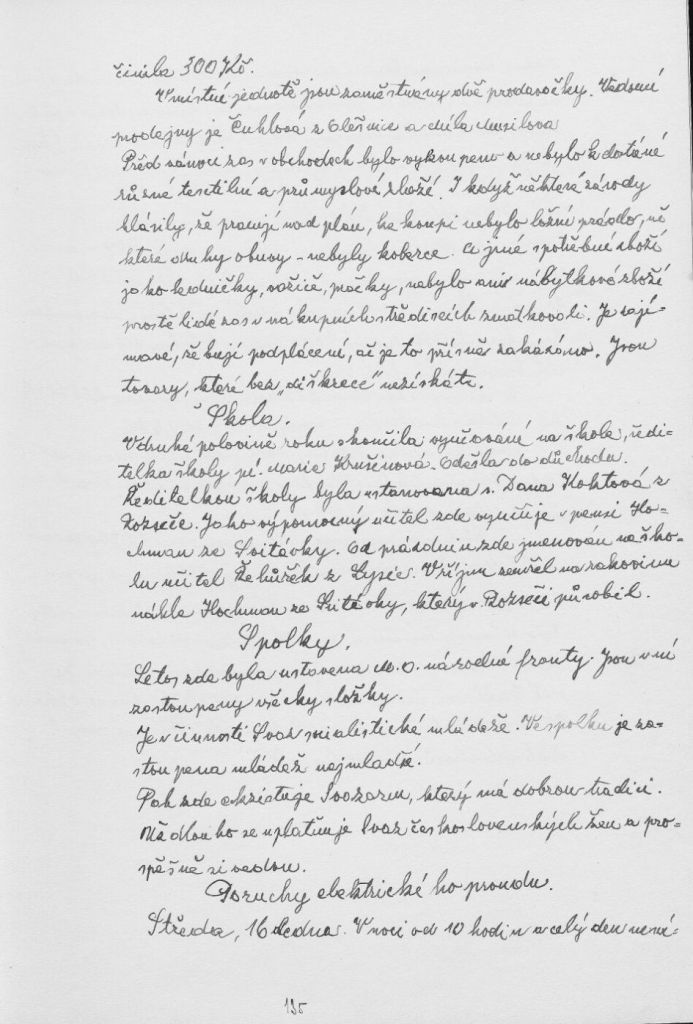 činila 300 Kčs.
V místné jednotě jsou zaměstnány dvě prodavočky. Vedoucí
prodejny je Čuhlová z Olešnice a Míla Musilova
Před vánoci zas v obchodech bylo vykoupeno a nebylo k dostáné
různé textilní a průmyslové zboží. I když některé závody
hlásily, že pracují nad plán, ke koupi nebylo ložní prádlo, ně
které druhy obuvy - nebyly koberce. A jiné spotřební zboží
jako ledničky, vařiče, pračky, nebylo ani nábytkové zboží
prostě lidé zas v nákupních střediscích zmatkovali. Je zají-
mavé, že bují podplácení, ač je to přísně zakázáno. Jsou
tovary, které bez „diskrece" nezískáte.
Škola.
V druhé polovině roku skončila vyučování na škole, ředi-
telka školy pí. Marie Krušinová. Odešla do důchodu.
Ředitelkou školy byla ustanovena s. Dana Kohtová z
Rozseče. Jako výpomocný učitel zde vyučuje v pensi Ho-
chman ze Svitávky. Od prázdnin zde jmenován na ško-
lu učitel Řehůřek z Lysic. V říjnu zemřel na rakovinu
náhle Hochman ze Svitávky, který v Rozseči působil.
Spolky.
Letos zde byla ustavena M.O. národné fronty. Jsou v ní
zastoupeny všecky složky.
Je v činnosti Svaz socialistické mládeže. Ve spolku je za-
stoupena mládež nejmladší.
Pak zde existuje Svazarm, který má dobrou tradici.
Už dlouho se uplatňuje Svaz československých žen a pro-
spěšně si vedou.
Poruchy elektrického proudu.
Středa, 16 ledna. V noci od 10 hodin a celý den není-
195